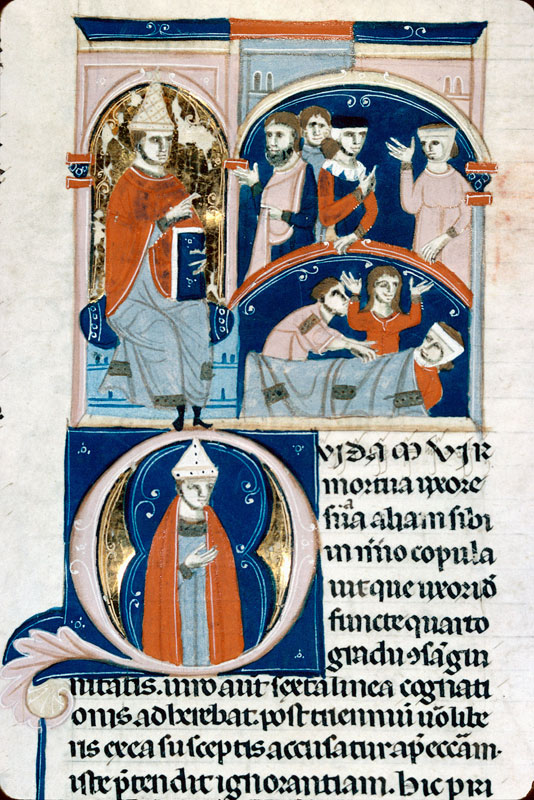 QVIDAM VIR
mortua uxore
sua aliam sibi
in mṙio copula
uit que uxori d̄
functe quarto
gradu ꝯsāgui
nitatis. uiro aūt sexta linea cognati
onis adherebat. post trienniū ū libe
ris ex ea susceptis accusatur ap̄ eccām.
iste p̄tendit ignorantiam. hic pri